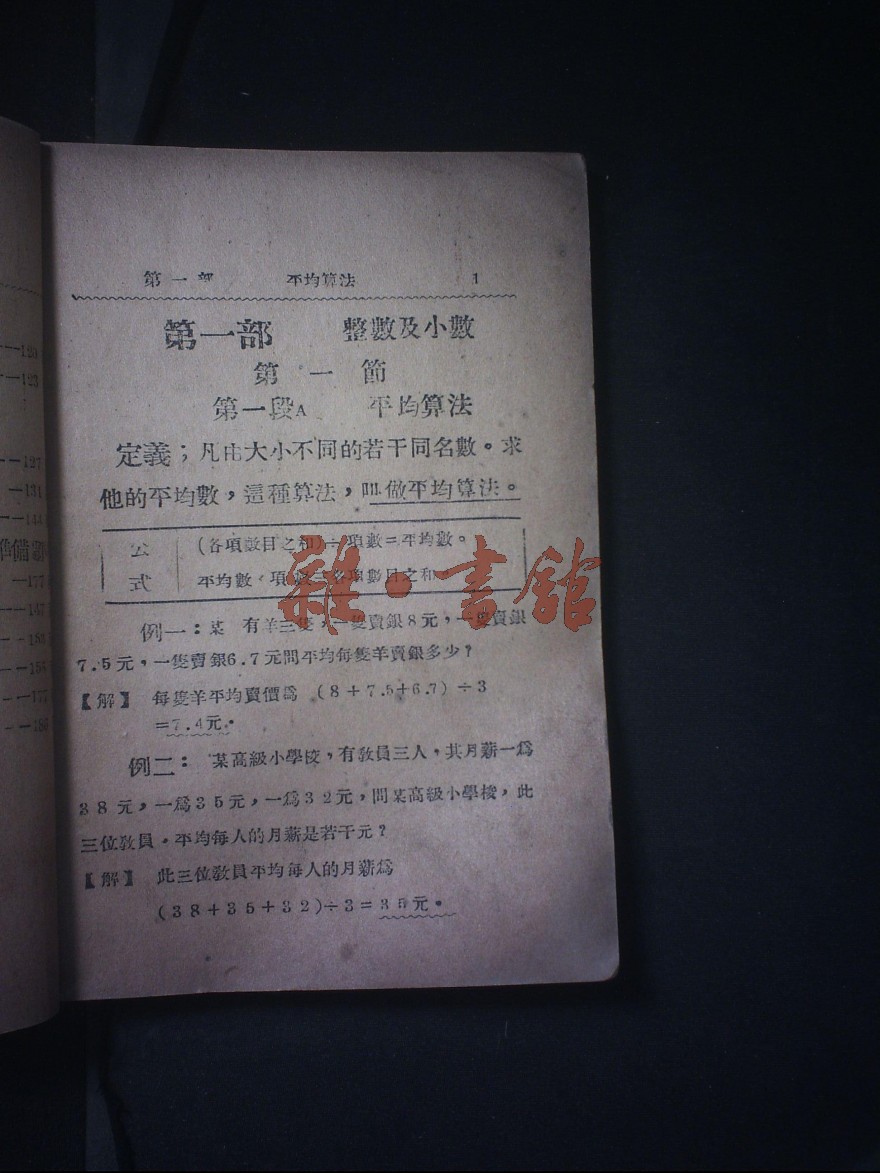 第一部 平均算法 1
第一部 整數及小數
第一節
第一段A 平均算法
定義；凡由大小不同的若干同名數。求
他的平均數，這種算法，叫做平均算法。
公式
(各項數目之和)÷項數=平均數。
平均數 項數=各項數目之和
例一：某 有羊三隻，一隻賣銀8元，一隻賣銀
7.5元，一隻賣銀6.7元問平均每隻羊賣銀多少？
【解】 每隻羊平均賣價為 (8+7.5+6.7)÷3
=7.4元。
例二： 某高級小學校，有教員三人，其月薪一爲
38元，一爲35元，一爲32元，問某高級小學校，此
三位教員，平均每人的月薪是若干元？
【解】 此三位教員平均每人的月薪爲
(38+35+32)÷3=35元。
雜·書館
--123
--127
--131
--144
準備
--177
--147
--155
--177